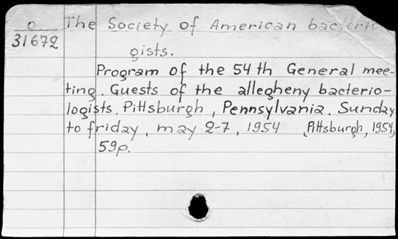 O The Society of American bacterio
31672 gists.
Program of the 54th General mee-
ting. Guests of the allegheny bacterio-
logists. Pittsburgh, Pennsylvania. Sunday
to friday, may 2-7, 1954 Pittsburgh, 1954,
59p.